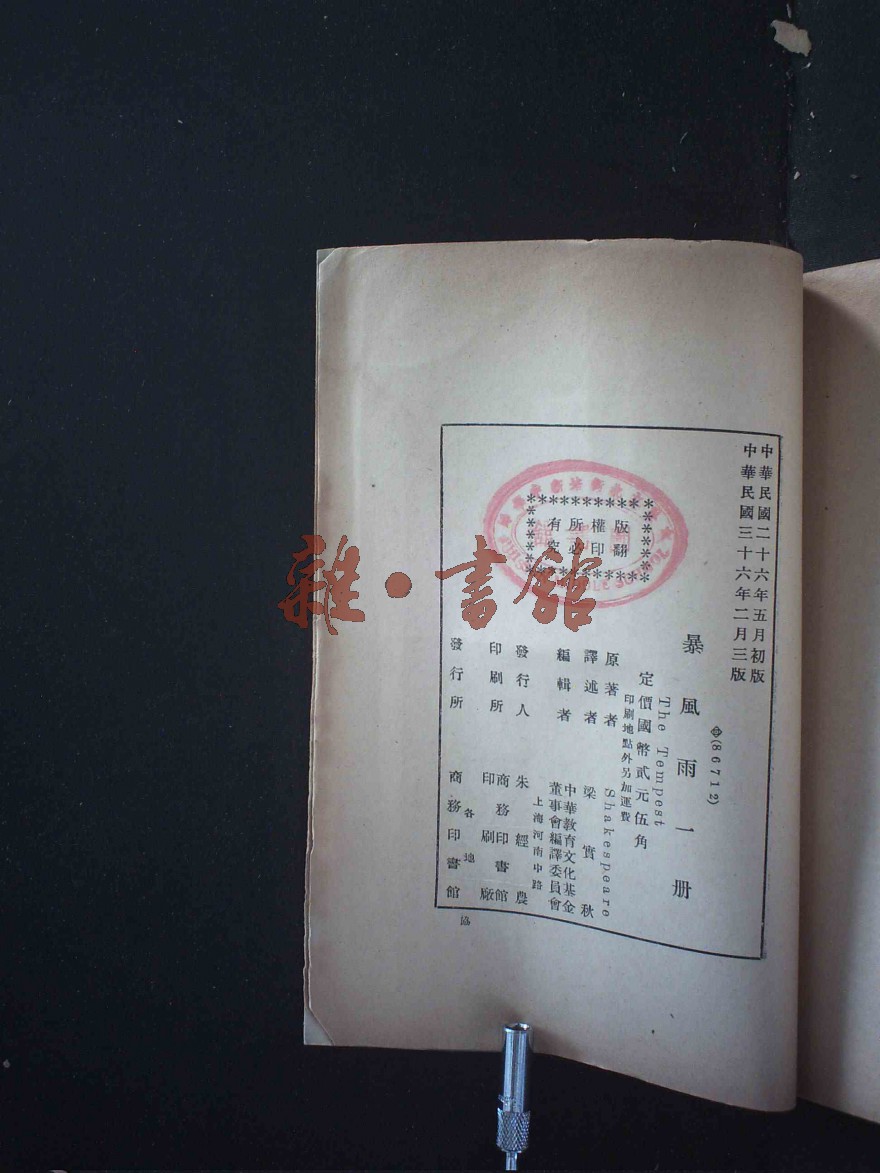 中華民國二十六年五月初版
中華民國三十六年二月三版
(86712)
暴風雨一册
The Tempest
定價國幣貳元伍角
印刷地點外另加運費
原著者 Shakespeare
譯述者 梁實秋
編輯者 中華教育文化基金
董事會編譯委員會
上海河南中路
發行人 朱經農
印刷所 商務印書館
印刷廠
發行所 各地
商務印書館
版權所有
翻印必究
協
雜·書館